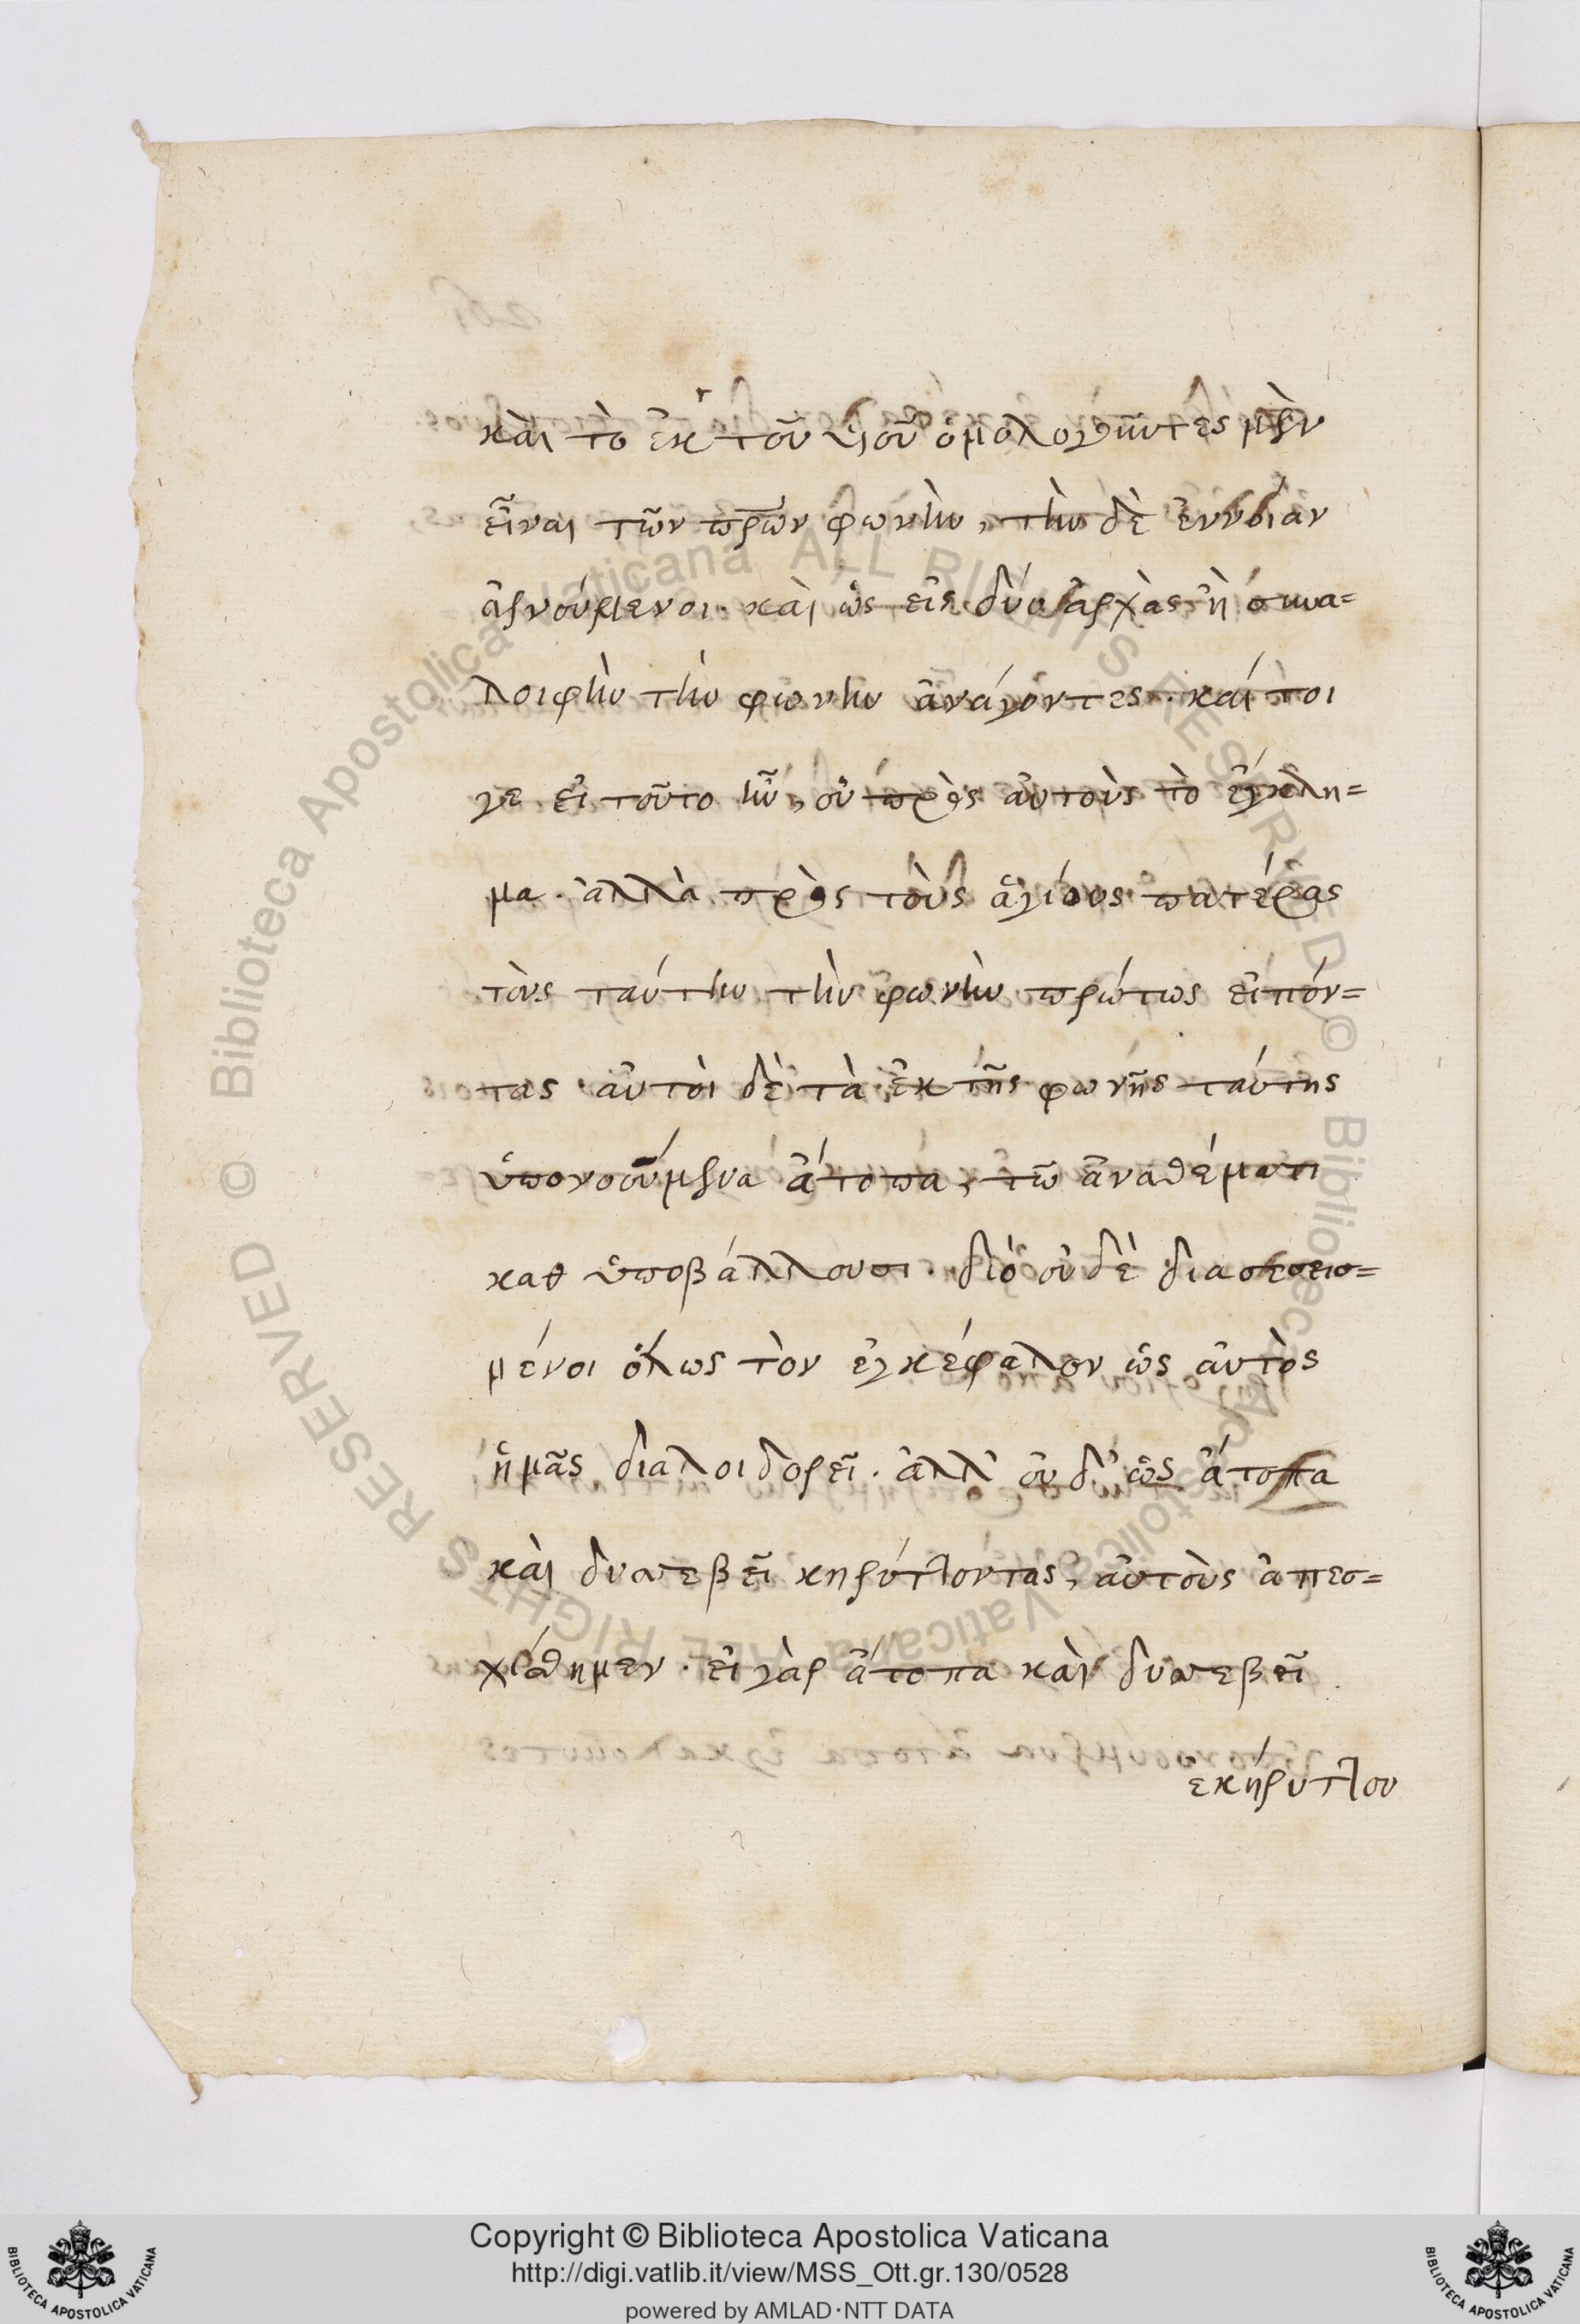 καὶ τὸ ἐκ τοῦ υἱοῦ ὁμολογοῦντες μὲν
εἶναι τῶν πρων φωνὴν, τὴν δὲ ἔννοιαν
ἀρνούμενοι· καὶ ὡς εἰς δύο ἀρχὰς ἢ συνα=
λοιφὴν τὴν φωνὴν ἀνάγοντες. καί τοι
γε εἰ τοῦτο ἦν, οὐ πρὸς αὐτοὺς τὸ ἔγκλη=
μα. ἀλλὰ πρὸς τοὺς ἁγίους πατέρας
τοὺς ταύτην τὴν φωνὴν πρώτως εἰπόν=
τας· αὐτοὶ δὲ τὰ ἐκ τῆς φωνῆς ταύτης
ὑπονοούμενα ἄτοπα, τῶ ἀναθέματι
καθ ὑποβάλλουσι. διὸ οὐδὲ διασεσεισ=
μένοι ὅλως τὸν ἐγκέφαλον ὡς αὐτὸς
ἡμᾶς διαλοιδορεῖ. ἀλλ' οὐδ' ὡς ἄτοπα
καὶ δυσσεβεῖ κηρύττοντας, αὐτοὺς ἀπεσ=
χίσθημεν. εἰ γὰρ ἄτοπα καὶ δυσσεβεῖ
εκήρυττου
Copyright © Biblioteca Apostolica Vaticana
http://digi.vatlib.it/view/MSS_Ott.gr.130/0528
powered by AMLAD·NTT DATA
Biblioteca Apostolica Vaticana ALL RIGHTS RESERVED ©
Biblioteca Apostolica Vaticana ALL RIGHTS RESERVED ©
BIBLIOTECA APOSTOLICA VATICANA
BIBLIOTECA APOSTOLICA VATICANA